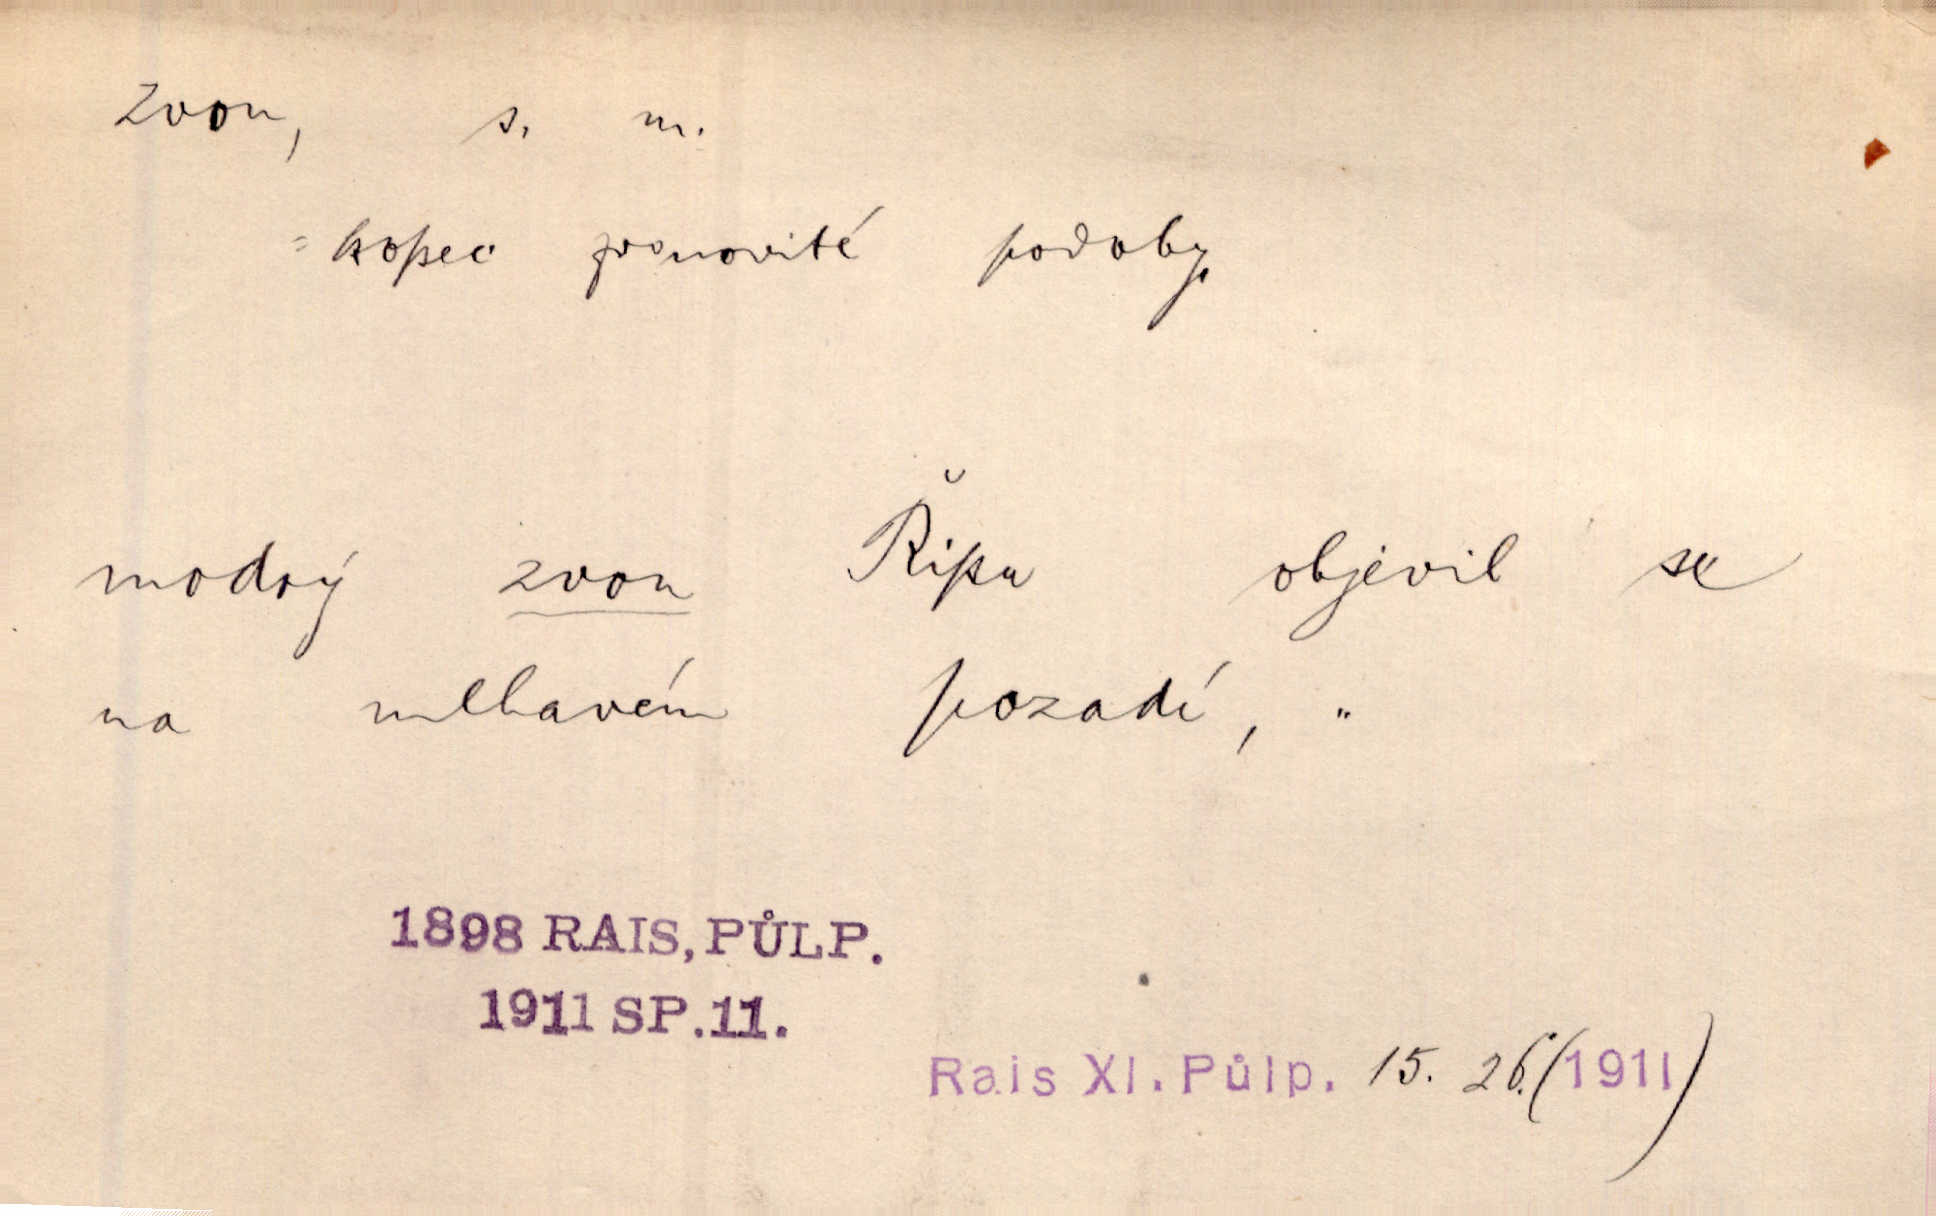 zvon, s. m.
= kopec zvonovité podoby
modrý zvon Řípu objevil se
na mlhavém pozadí, "
1898 RAIS, PŮLP.
1911 SP. 11.
Rais XI. Půlp. 15. 26. (1911)